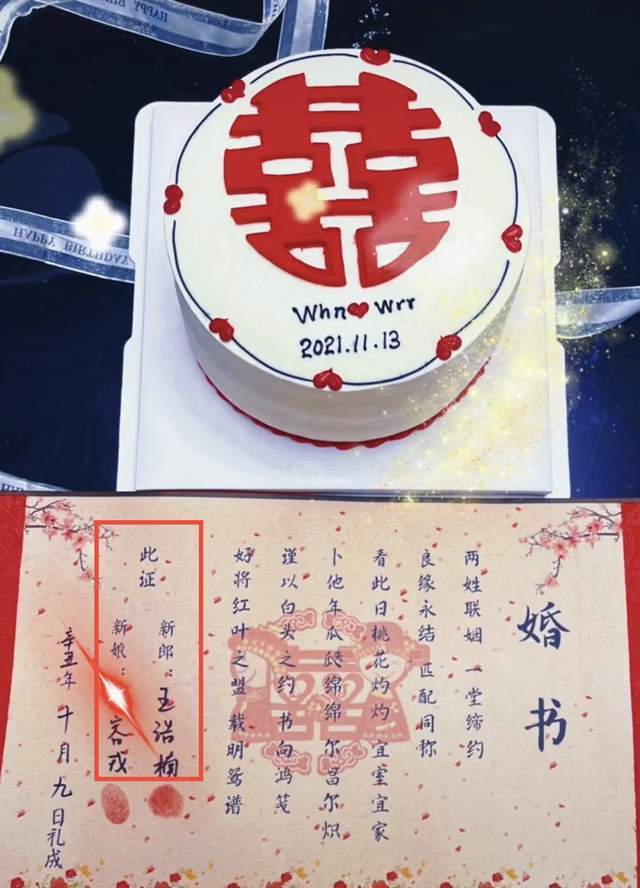 HAPPY BIRTHDAY
囍
Whn Wrr
2021.11.13
婚书
两姓联姻 一堂缔约
良缘永结 匹配同称
看此日桃花灼灼 宜室宜家
卜他年瓜瓞绵绵 尔昌尔炽
谨以白头之约 书向鸿笺
好将红叶之盟 载明鸳谱
此证
新郎：王浩楠
新娘：
辛丑年 十月 九日礼成